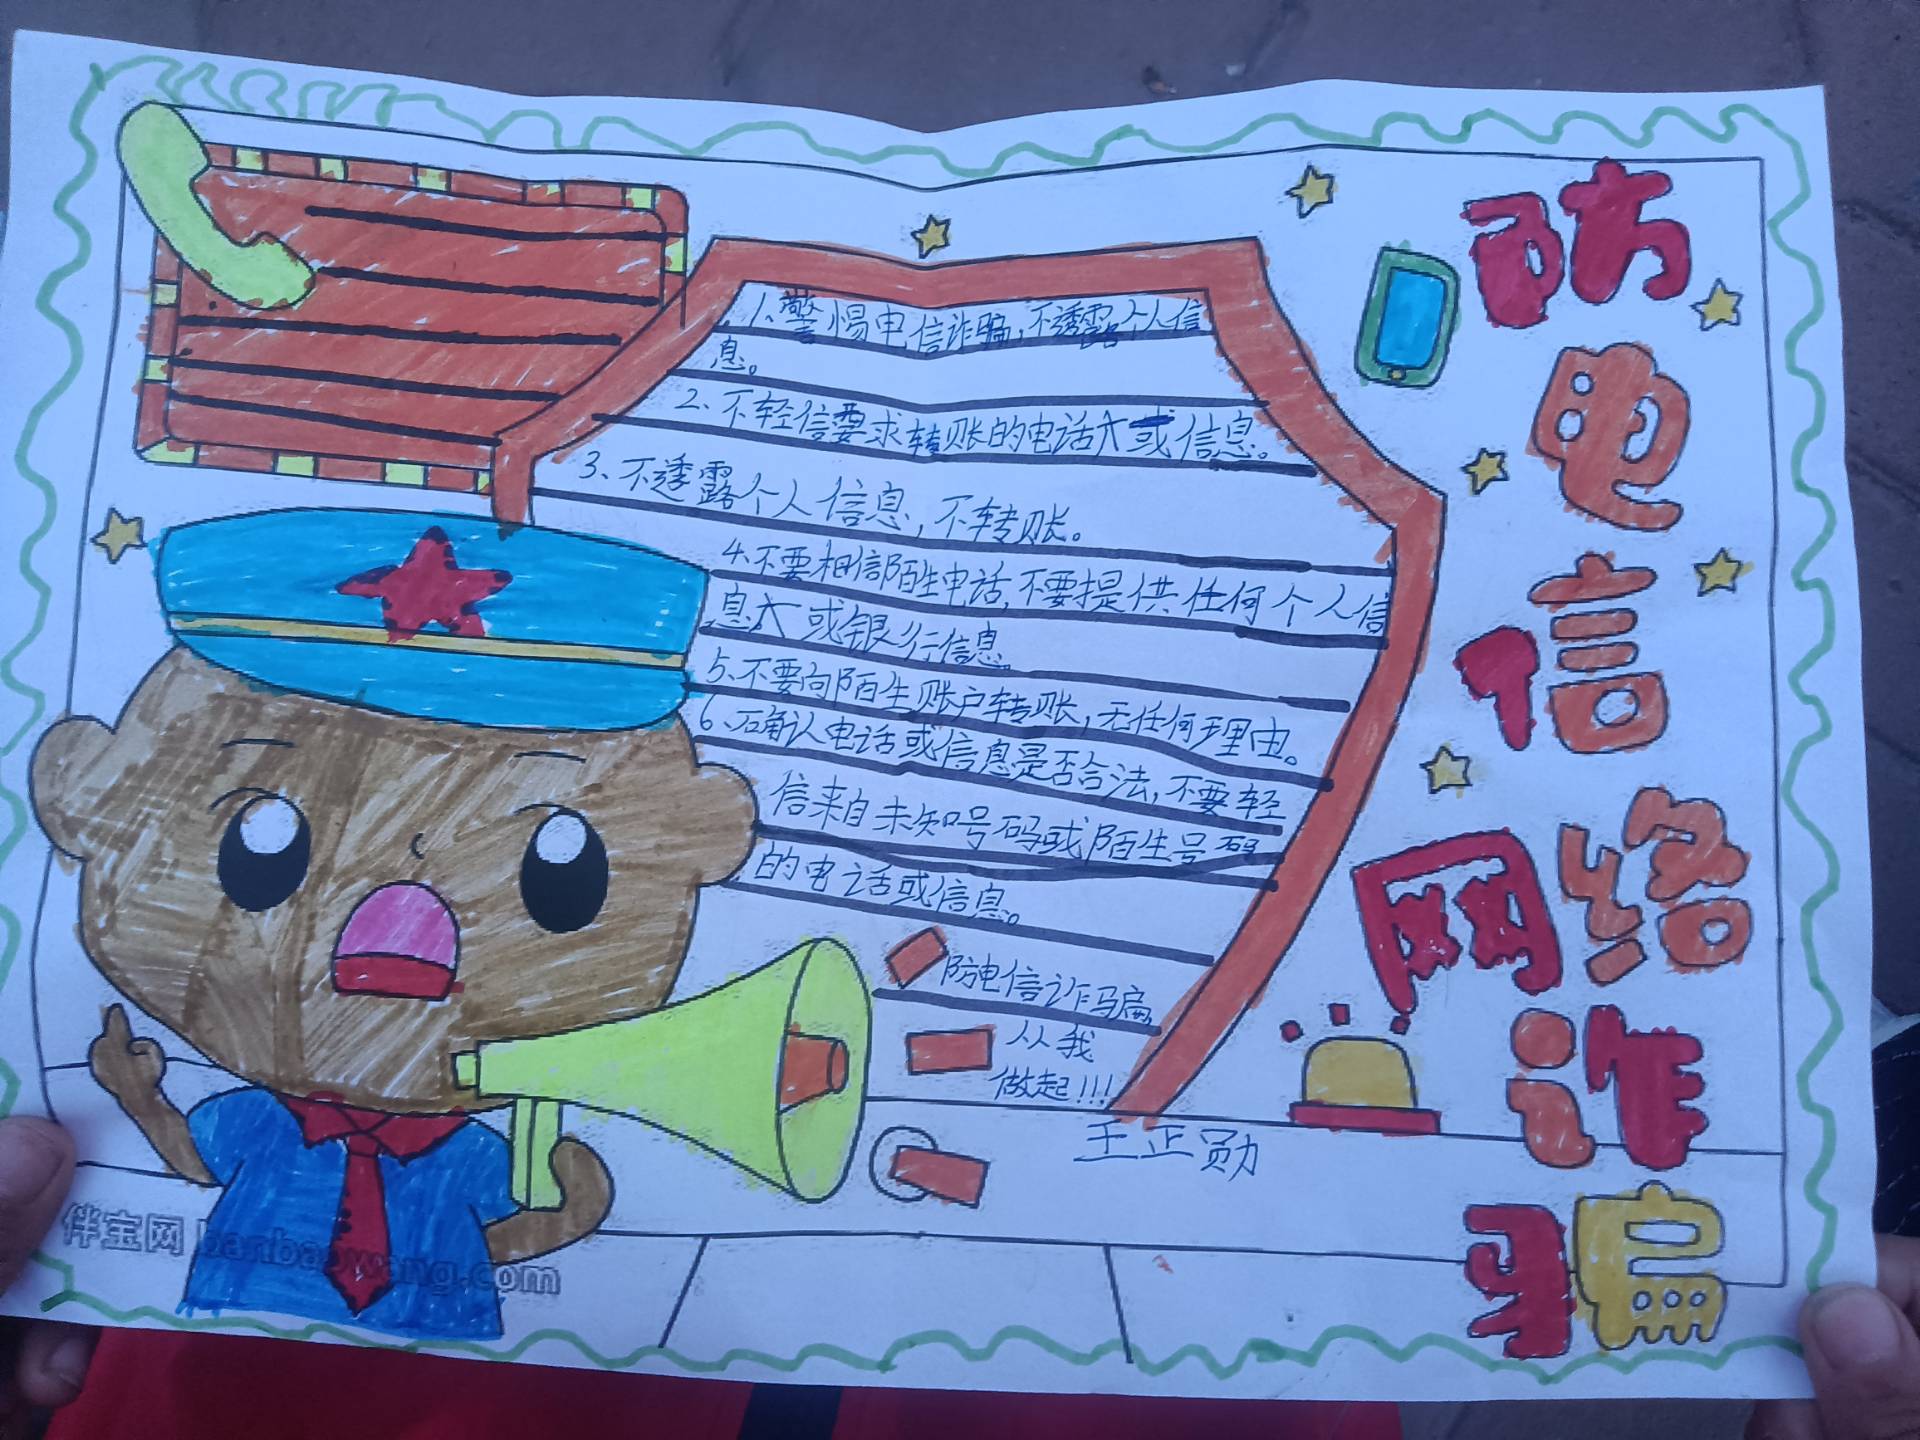 防电信网络诈骗
1、警惕电信诈骗，不透露个人信
息。
2、不轻信要求转账的电话或信息。
3、不透露个人信息，不转账。
4、不要相信陌生电话，不要提供任何个人信
息或银行信息。
5、不要向陌生账户转账，无任何理由。
6、确认电话或信息是否合法，不要轻
信来自未知号码或陌生号码
的电话或信息。
防电信诈骗，
从我
做起!!!
王正勋
伴宝网 banbaowang.com